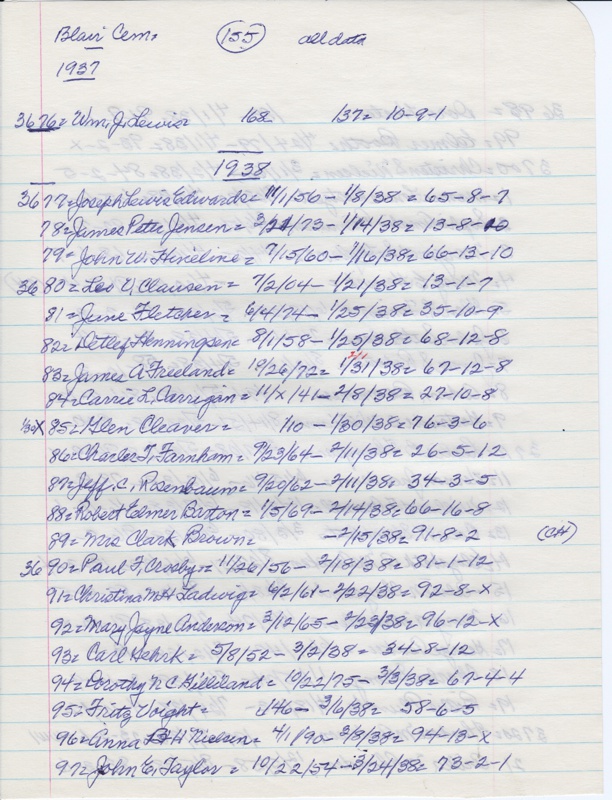 Blair Cem. 155 all data
1937
3676= Wm. J. Lewis 168 137= 10-9-1
1938
3677= Joseph Lewis Edwards= 11/1/56- 1/8/38= 65-8-7
78= James Peter Jensen= 3/21/73- 1/14/38= 13-8-10
79= John W. Hineline= 7/15/60- 1/16/38= 66-13-10
3680= Leo V. Clausen= 7/2/04- 1/21/38= 13-1-7
81= June Fletcher= 6/4/74- 1/25/38= 35-10-9
82= Detlef Henningsen= 8/1/58- 1/25/38= 68-12-8
83= James A Freeland= 10/26/72= 1/31/38= 67-12-8
84= Carrie L. Carrigan= 11/x/41- 2/8/38= 27-10-8
85= Glen Cleaver= /10- 1/30/38= 76-3-6
86= Charles T. Farnham= 9/23/64- 2/11/38= 26-5-12
87= Jeff. C. Rosenbaum= 9/20/62- 2/11/38= 34-3-5
88= Robert Elmer Barton= 1/5/69- 2/14/38= 66-16-8
89= Mrs Clark Brown= -2/15/38= 91-8-2 (CH)
3690= Paul F. Crosby= 11/26/56- 2/18/38= 81-1-12
91= Christina M H Ladwig= 6/2/61- 2/22/38= 92-8-x
92= Mary Jayne Anderson= 3/12/65- 2/23/38= 96-12-x
93= Carl Hehrk= 5/8/52- 3/2/38= 34-8-12
94= Dorothy N C Hilliland= 10/22/75- 3/3/38= 67-4-4
95= Fritz Voight= /46- 3/6/38= 58-6-5
96= Anna H Nielsen= 4/1/90- 3/8/38= 94-13-x
97= John E. Taylor= 10/22/54- 3/24/38= 73-2-1